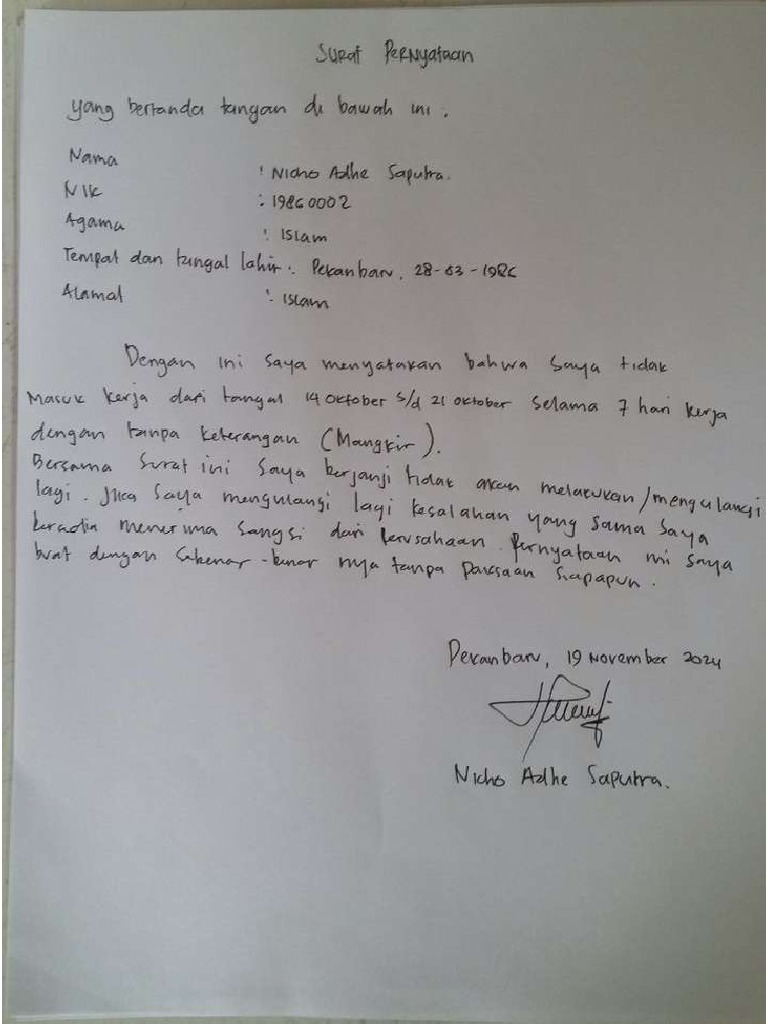 Surat Pernyataan
yang bertanda tangan di bawah ini :
Nama : Nicho Adhe Saputra.
Nik : 19860002
Agama : Islam
Tempat dan tanggal lahir : Pekanbaru, 28-03-1986
Alamat : Islam
Dengan ini saya menyatakan bahwa saya tidak
Masuk kerja dari tanggal 14 Oktober s/d 21 Oktober selama 7 hari kerja
dengan tanpa keterangan (Mangkir).
Bersama surat ini saya berjanji tidak akan melakukan/mengulangi
lagi. Jika saya mengulangi lagi kesalahan yang sama saya
bersedia menerima sangsi dari perusahaan. Pernyataan ini saya
buat dengan sebenar-benar nya tanpa paksaan siapapun.
Pekanbaru, 19 November 2024
Nicho Adhe Saputra.